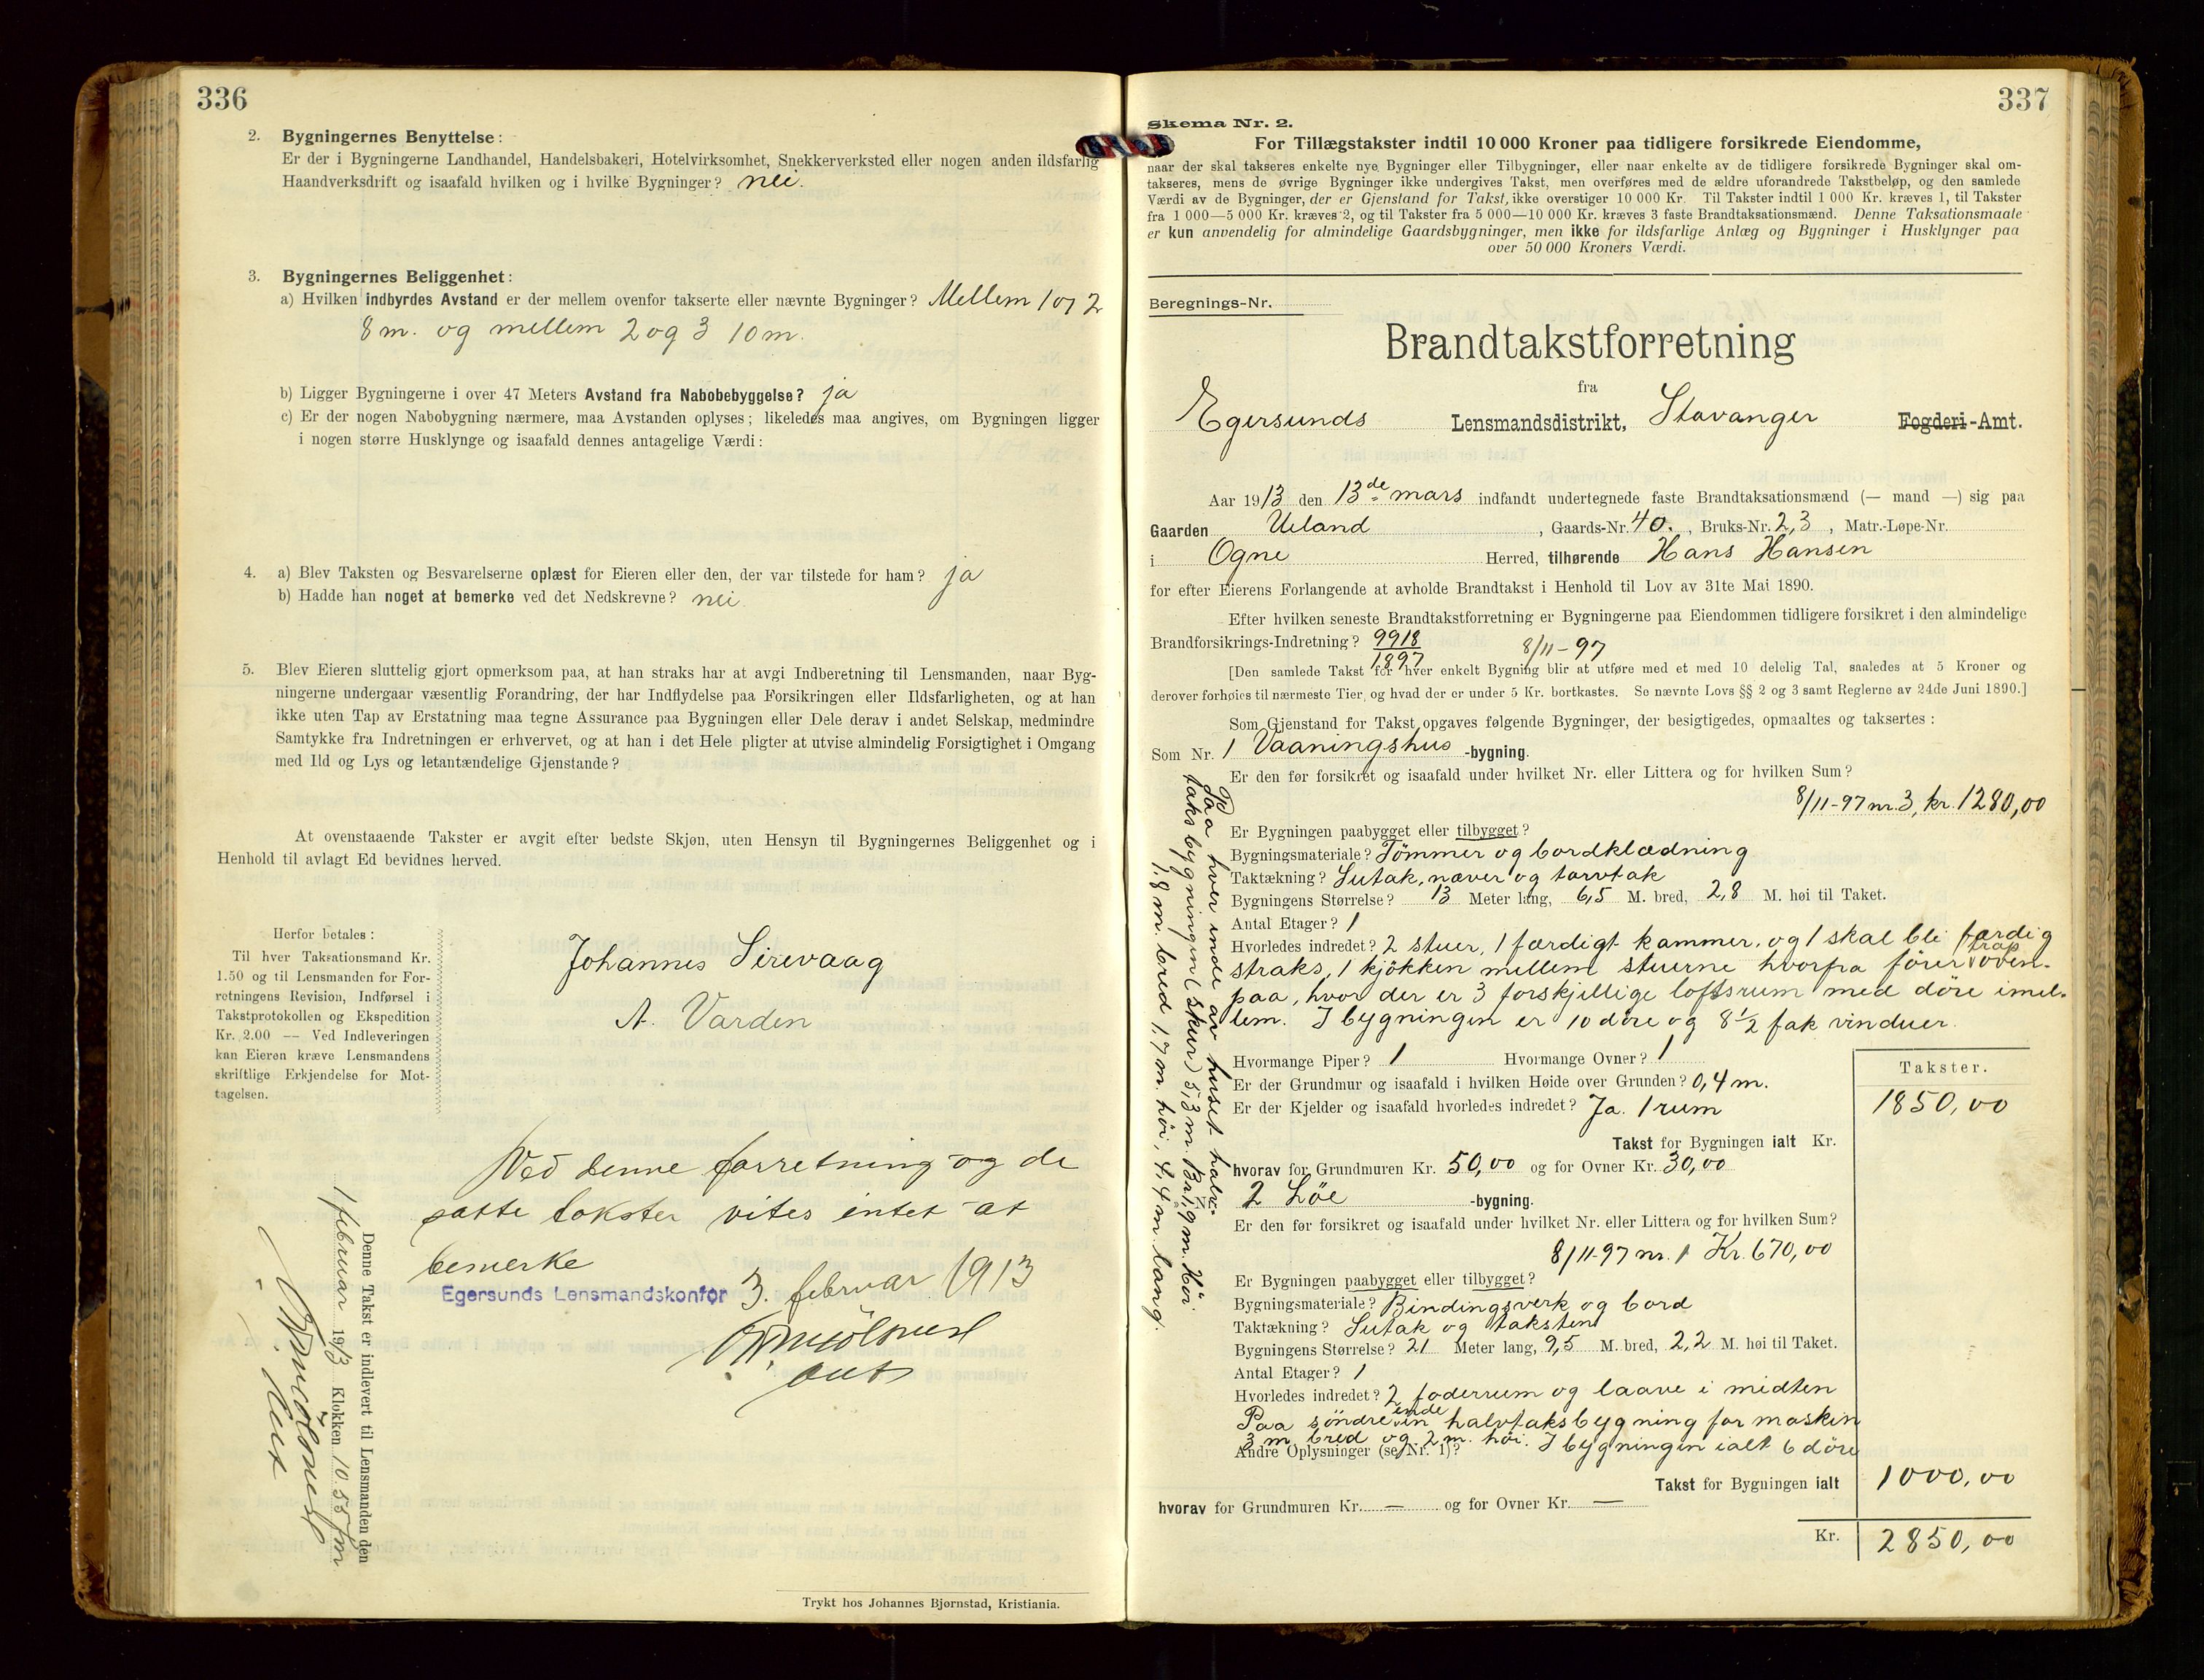 336
2. Bygningernes Benyttelse:
Er der i Bygningerne Landhandel, Handelsbakeri, Hotelvirksomhet, Snekkerverksted eller nogen anden ildsfarlig
Haandverksdrift og isaafald hvilken og i hvilke Bygninger? nei.
3. Bygningernes Beliggenhet:
a) Hvilken indbyrdes Avstand er der mellem ovenfor takserte eller nævnte Bygninger? Mellem 1 og 2
8 m. og mellem 2 og 3 10 m.
b) Ligger Bygningerne i over 47 Meters Avstand fra Nabobebyggelse? ja
c) Er der nogen Nabobygning nærmere, maa Avstanden oplyses; likeledes maa angives, om Bygningen ligger
i nogen større Husklynge og isaafald dennes antagelige Værdi:
4. a) Blev Taksten og Besvarelserne oplæst for Eieren eller den, der var tilstede for ham? ja
b) Hadde han noget at bemerke ved det Nedskrevne? nei
5. Blev Eieren sluttelig gjort opmerksom paa, at han straks har at avgi Indberetning til Lensmanden, naar Byg-
ningerne undergaar væsentlig Forandring, der har Indflydelse paa Forsikringen eller Ildsfarligheten, og at han
ikke uten Tap av Erstatning maa tegne Assurance paa Bygningen eller Dele derav i andet Selskap, medmindre
Samtykke fra Indretningen er erhvervet, og at han i det Hele pligter at utvise almindelig Forsigtighet i Omgang
med Ild og Lys og letantændelige Gjenstande?
At ovenstaaende Takster er avgit efter bedste Skjøn, uten Hensyn til Bygningernes Beliggenhet og i
Henhold til avlagt Ed bevidnes herved.
Herfor betales:
Til hver Taksationsmand Kr.
1.50 og til Lensmanden for For-
retningens Revision, Indførsel i
Takstprotokollen og Ekspedition
Kr. 2.00 — Ved Indleveringen
kan Eieren kræve Lensmandens
skriftlige Erkjendelse for Mot-
tagelsen.
Johannes Sirevaag
A. Varden
Ved denne forretning og de
satte takster vites intet at
bemerke
Egersunds Lensmandskontor 3. februar 1913
aut
Denne Takst er indlevert til Lensmanden den
1 februar 1913 Klokken 10.55 fm
Aut
Trykt hos Johannes Bjørnstad, Kristiania.
337
Skema Nr. 2.
For Tillægstakster indtil 10 000 Kroner paa tidligere forsikrede Eiendomme,
naar der skal takseres enkelte nye Bygninger eller Tilbygninger, eller naar enkelte av de tidligere forsikrede Bygninger skal om-
takseres, mens de øvrige Bygninger ikke undergives Takst, men overføres med de ældre uforandrede Takstbeløp, og den samlede
Værdi av de Bygninger, der er Gjenstand for Takst, ikke overstiger 10 000 Kr. Til Takster indtil 1 000 Kr. kræves 1, til Takster
fra 1 000—5 000 Kr. kræves 2, og til Takster fra 5 000—10 000 Kr. kræves 3 faste Brandtaksationsmænd. Denne Taksationsmaate
er kun anvendelig for almindelige Gaardsbygninger, men ikke for ildsfarlige Anlæg og Bygninger i Husklynger paa
over 50 000 Kroners Værdi.
Beregnings-Nr.
Brandtakstforretning
fra
Egersunds Lensmandsdistrikt, Stavanger Fogderi-Amt.
Aar 1913 den 13de mars indfandt undertegnede faste Brandtaksationsmænd (— mand —) sig paa
Gaarden Ueland, Gaards-Nr. 40., Bruks-Nr. 2,3, Matr.-Løpe-Nr.
i Ogne Herred, tilhørende Hans Hansen
for efter Eierens Forlangende at avholde Brandtakst i Henhold til Lov av 31te Mai 1890.
Efter hvilken seneste Brandtakstforretning er Bygningerne paa Eiendommen tidligere forsikret i den almindelige
Brandforsikrings-Indretning? 9918/1897 8/11-97
[Den samlede Takst for hver enkelt Bygning blir at utføre med et med 10 delelig Tal, saaledes at 5 Kroner og
derover forhøies til nærmeste Tier, og hvad der er under 5 Kr. bortkastes. Se nævnte Lovs §§ 2 og 3 samt Reglerne av 24de Juni 1890.]
Som Gjenstand for Takst opgaves følgende Bygninger, der besigtigedes, opmaaltes og taksertes:
Som Nr. 1 Vaaningshus -bygning.
Er den før forsikret og isaafald under hvilket Nr. eller Littera og for hvilken Sum?
8/11-97 nr. 3, kr. 1280,00
Er Bygningen paabygget eller tilbygget?
Bygningsmateriale? Tömmer og bordklædning
Taktækning? Sutak, næver og torvtak
Bygningens Størrelse? 13 Meter lang, 6,5 M. bred, 2,8 M. høi til Taket.
Antal Etager? 1
Hvorledes indredet? 2 stuer, 1 færdigt kammer, og 1 skal bli færdig
straks, 1 kjökken mellem stuerne hvorfra förer trap oven-
paa, hvor der er 3 forskjellige loftsrum med döre imel-
lem. I bygningen er 10 döre og 8½ fak vinduer.
Hvormange Piper? 1 Hvormange Ovner? 1
Er der Grundmur og isaafald i hvilken Høide over Grunden? 0,4 m.
Er der Kjelder og isaafald hvorledes indredet? Ja. 1 rum
Takster.
1850,00
Takst for Bygningen ialt Kr.
hvorav for Grundmuren Kr. 50,00 og for Ovner Kr. 30,00
Paa hver ende av huset halv-
taks bygningen (skur) 5,3 m. Br. 1,9 m. Höi
1,8 m. bred 1,7 m. höi, 4,4 m. lang.
2 Löe -bygning.
Er den før forsikret og isaafald under hvilket Nr. eller Littera og for hvilken Sum?
8/11-97 nr. 1 Kr. 670,00
Er Bygningen paabygget eller tilbygget?
Bygningsmateriale? Bindingsverk og bord
Taktækning? Sutak og taksten
Bygningens Størrelse? 21 Meter lang, 9,5 M. bred, 2,2 M. høi til Taket.
Antal Etager? 1
Hvorledes indredet? 2 foderrum og laave i midten
Paa söndre ende en halvtaksbygning for maskin
3 m bred og 2 m. höi. I bygningen ialt 6 döre
Andre Oplysninger (se Nr. 1)?
Takst for Bygningen ialt 1000,00
hvorav for Grundmuren Kr. — og for Ovner Kr. —
Kr. 2850,00